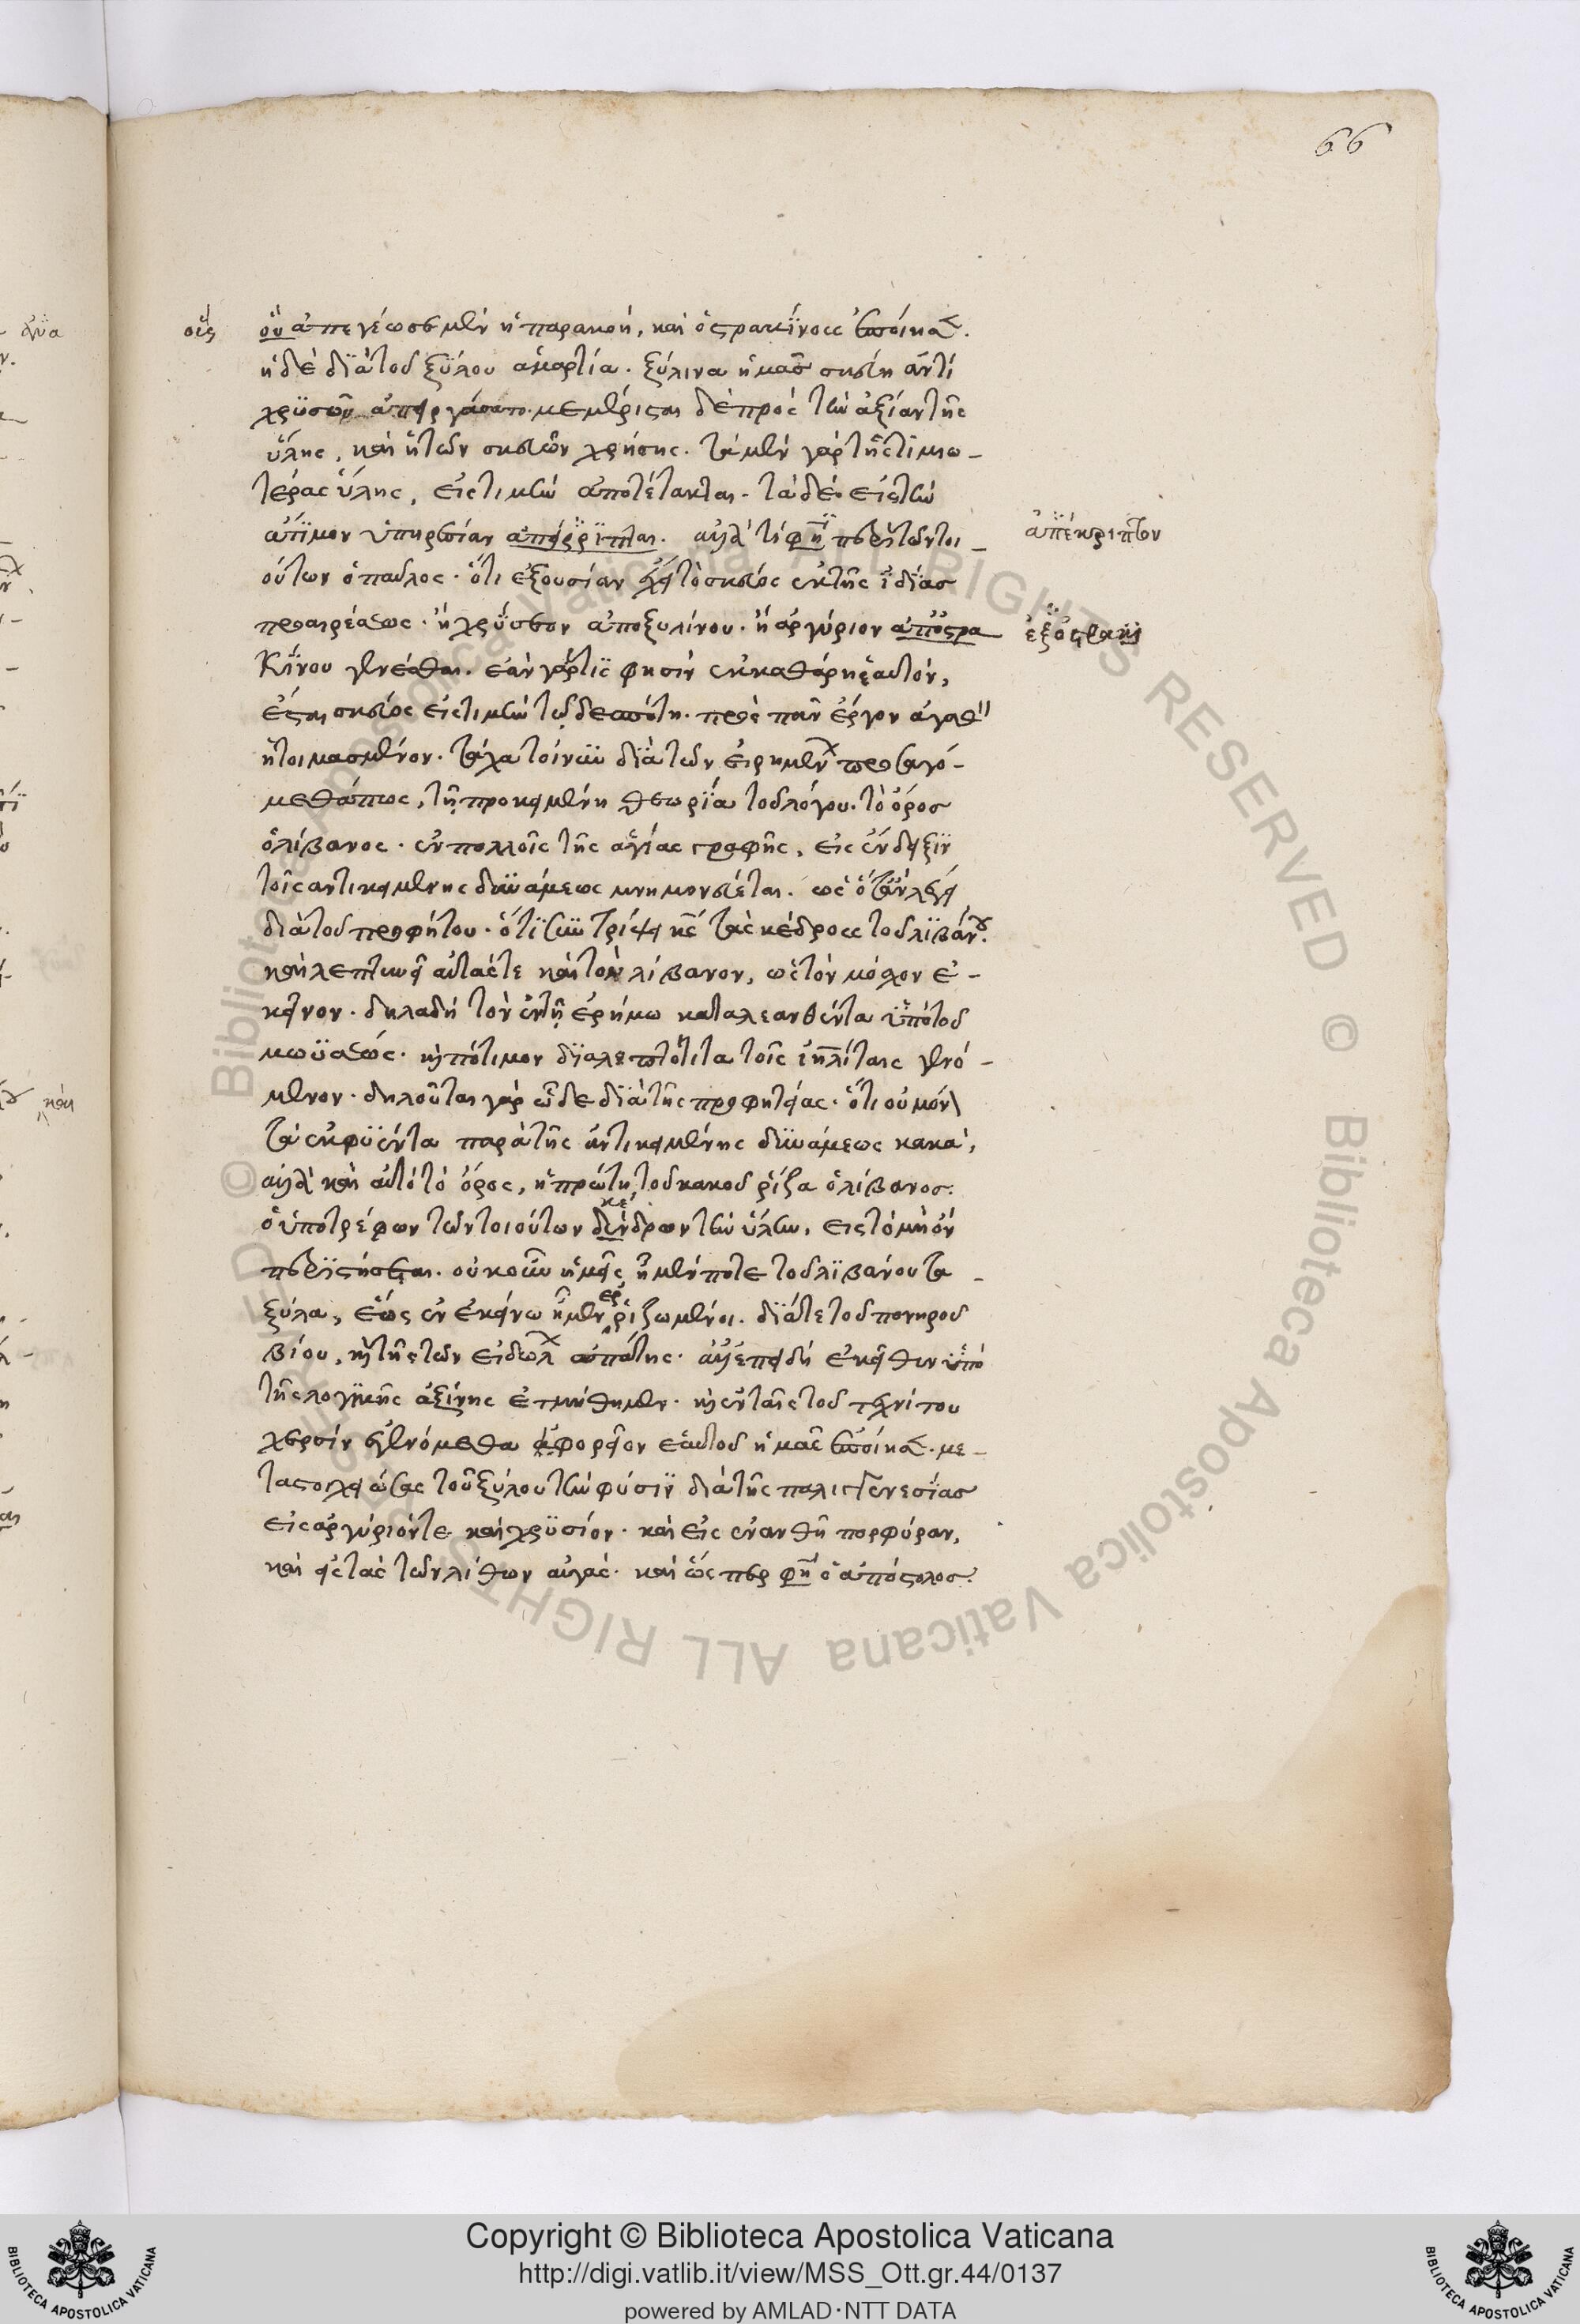 66
οὓς
οὓ ἀπεγέωσε μὲν ἡ παρακοὴ, καὶ ὀστρακίνους ἐποίησ.
ἡ δὲ διὰ τοῦ ξύλου ἁμαρτία. ξύλινα ἡμᾶς σκεύη ἀντὶ
χρυσῶν ἀπειργάσατο. μεμέρισται δὲ πρὸς τὴν ἀξίαν τῆς
ὕλης, καὶ ἡ τῶν σκευῶν χρῆσις. τὰ μὲν γὰρ τῆς τιμιω-
τέρας ὕλης, εἰς τιμὴν ἀποτέτακται. τὰ δὲ εἰς τὴν
ἄτιμον ὑπηρεσίαν ἀπέρριπται. ἀλλὰ τί φη περὶ τῶν τοι-
ἀπέκριπτον
ούτων ὁ παῦλος. ὅτι ἐξουσίαν ἔχει τὸ σκεῦος ἐκ τῆς ἰδίας
προαιρέσεως. ἢ χρύσεον ἀπὸ ξυλίνου. ἢ ἀργύριον ἀπὸ ὀστρα
ἐξ ὀστρακί
κίνου γενέσθαι. ἐὰν γάρ τις φησὶν ἐκκαθάρῃ ἑαυτὸν,
ἔσται σκεῦος εἰς τιμὴν τῷ δεσπότῃ. πρὸς πᾶν ἔργον ἀγαθ
ἡτοιμασμένον. τάχα τοίνυν διὰ τῶν εἰρημέν προσαγό-
μεθά πως, τῇ προκειμένῃ θεωρία τοῦ λόγου. τὸ ὄρος
ὁ λίβανος. ἐν πολλοῖς τῆς ἁγίας γραφῆς, εἰς ἔνδειξιν
τοῖς ἀντικειμένης δυνάμεως μνημονεύεται. ὡς ὅταν λέγῃ
διὰ τοῦ προφήτου. ὅτι συντρίψει κς τὰς κέδρους τοῦ λιβάνου.
καὶ λεπτυνεῖ αὐτάς τε καὶ τὸν λίβανον, ὡς τὸν μόσχον ἐ-
κεῖνον. δηλαδὴ τὸν ἐν τῇ ἐρήμω καταλεανθέντα ὑπὸ τοῦ
μωϋσέως. καὶ πότιμον διὰ λεπτότητα τοῖς ἰηλίταις γενό-
μενον. δηλοῦται γὰρ ὧδε διὰ τῆς προφητείας. ὅτι οὐ μόν
τὰ ἐκφυέντα παρὰ τῆς ἀντικειμένης δυνάμεως κακὰ,
ἀλλὰ καὶ αὐτὸ τὸ ὄρος, ἡ πρώτη τοῦ κακοῦ ῥίζα ὁ λίβανος.
ὁ ὑποτρέφων τῶν τοιούτων δένδρων τὴν ὕλην, εἰς τὸ μὴ ὂν
περιστήσεται. οὐκοῦν ἡμεῖς ἦμέν ποτε τοῦ λιβάνου τὰ
ξύλα, ἕως ἐν ἐκείνω ἦμεν ἐρριζωμένοι. διά τε τοῦ πονηροῦ
βίου, καὶ τῆς τῶν εἰδώλ ἀπάτης. ἀλλ' ἐπειδὴ ἐκεῖθεν ὑπὸ
τῆς λογικῆς ἀξίνης ἐτμήθημεν. καὶ ἐν ταῖς τοῦ τεχνίτου
χερσὶν ἐγενόμεθα φορεῖον ἑαυτοῦ ἡμᾶς ἐποίησ. με-
ταστοιχειώσας τοῦ ξύλου τὴν φύσιν διὰ τῆς παλιγγενεσίας
εἰς ἀργύριόν τε καὶ χρυσίον. καὶ εἰς εὐανθῆ πορφύραν,
καὶ εἰς τὰς τῶν λίθων αὐγάς. καὶ ὥσπερ φη ὁ ἀπόστολος.
Copyright © Biblioteca Apostolica Vaticana
http://digi.vatlib.it/view/MSS_Ott.gr.44/0137
powered by AMLAD·NTT DATA